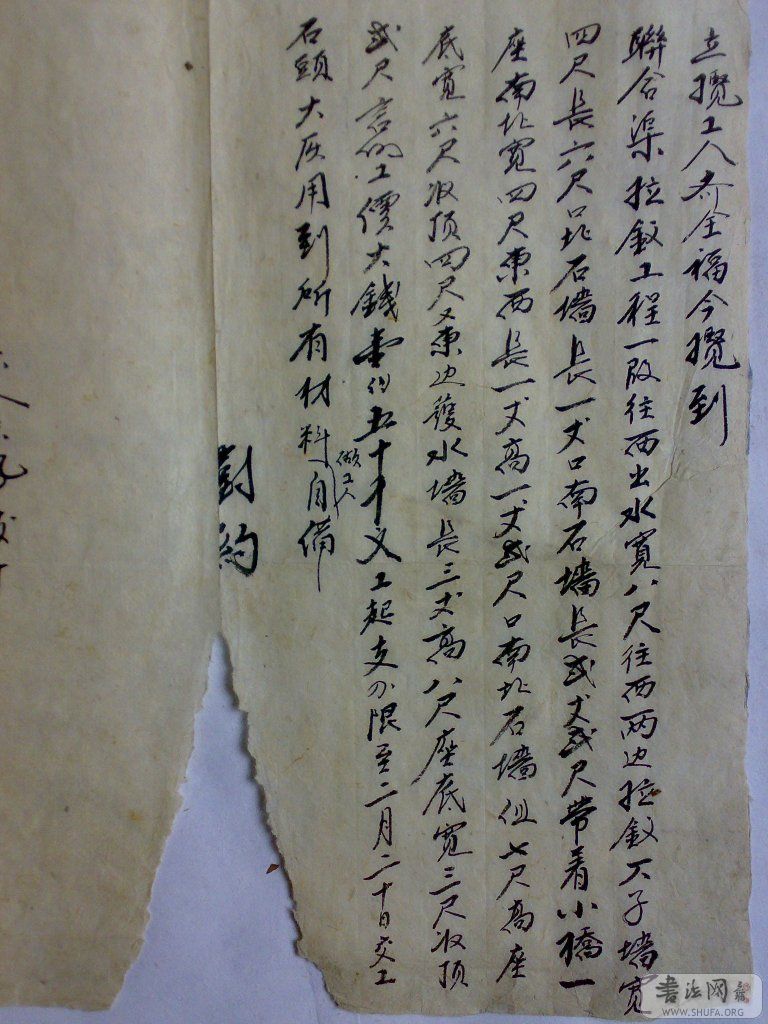 立攬工人齐全福今攬到
聯合渠拉釵工程一段往西出水寬八尺往西两边拉釵八子墙寬
四尺長六尺口北石墙長一丈口南石墙長弍丈弍尺带着小橋一
座南北寬四尺東西長一丈高一丈弍尺口南北石墙俱七尺高座
底寬六尺收顶四尺又東边護水墙長三丈高八尺座底寬三尺收顶
弍尺言明工價大錢壹佰五十千文工起支分限至二月二十日交工
石頭大灰用到所有材料做工人自備
對約
書法网
WWW.SHUFA.ORG